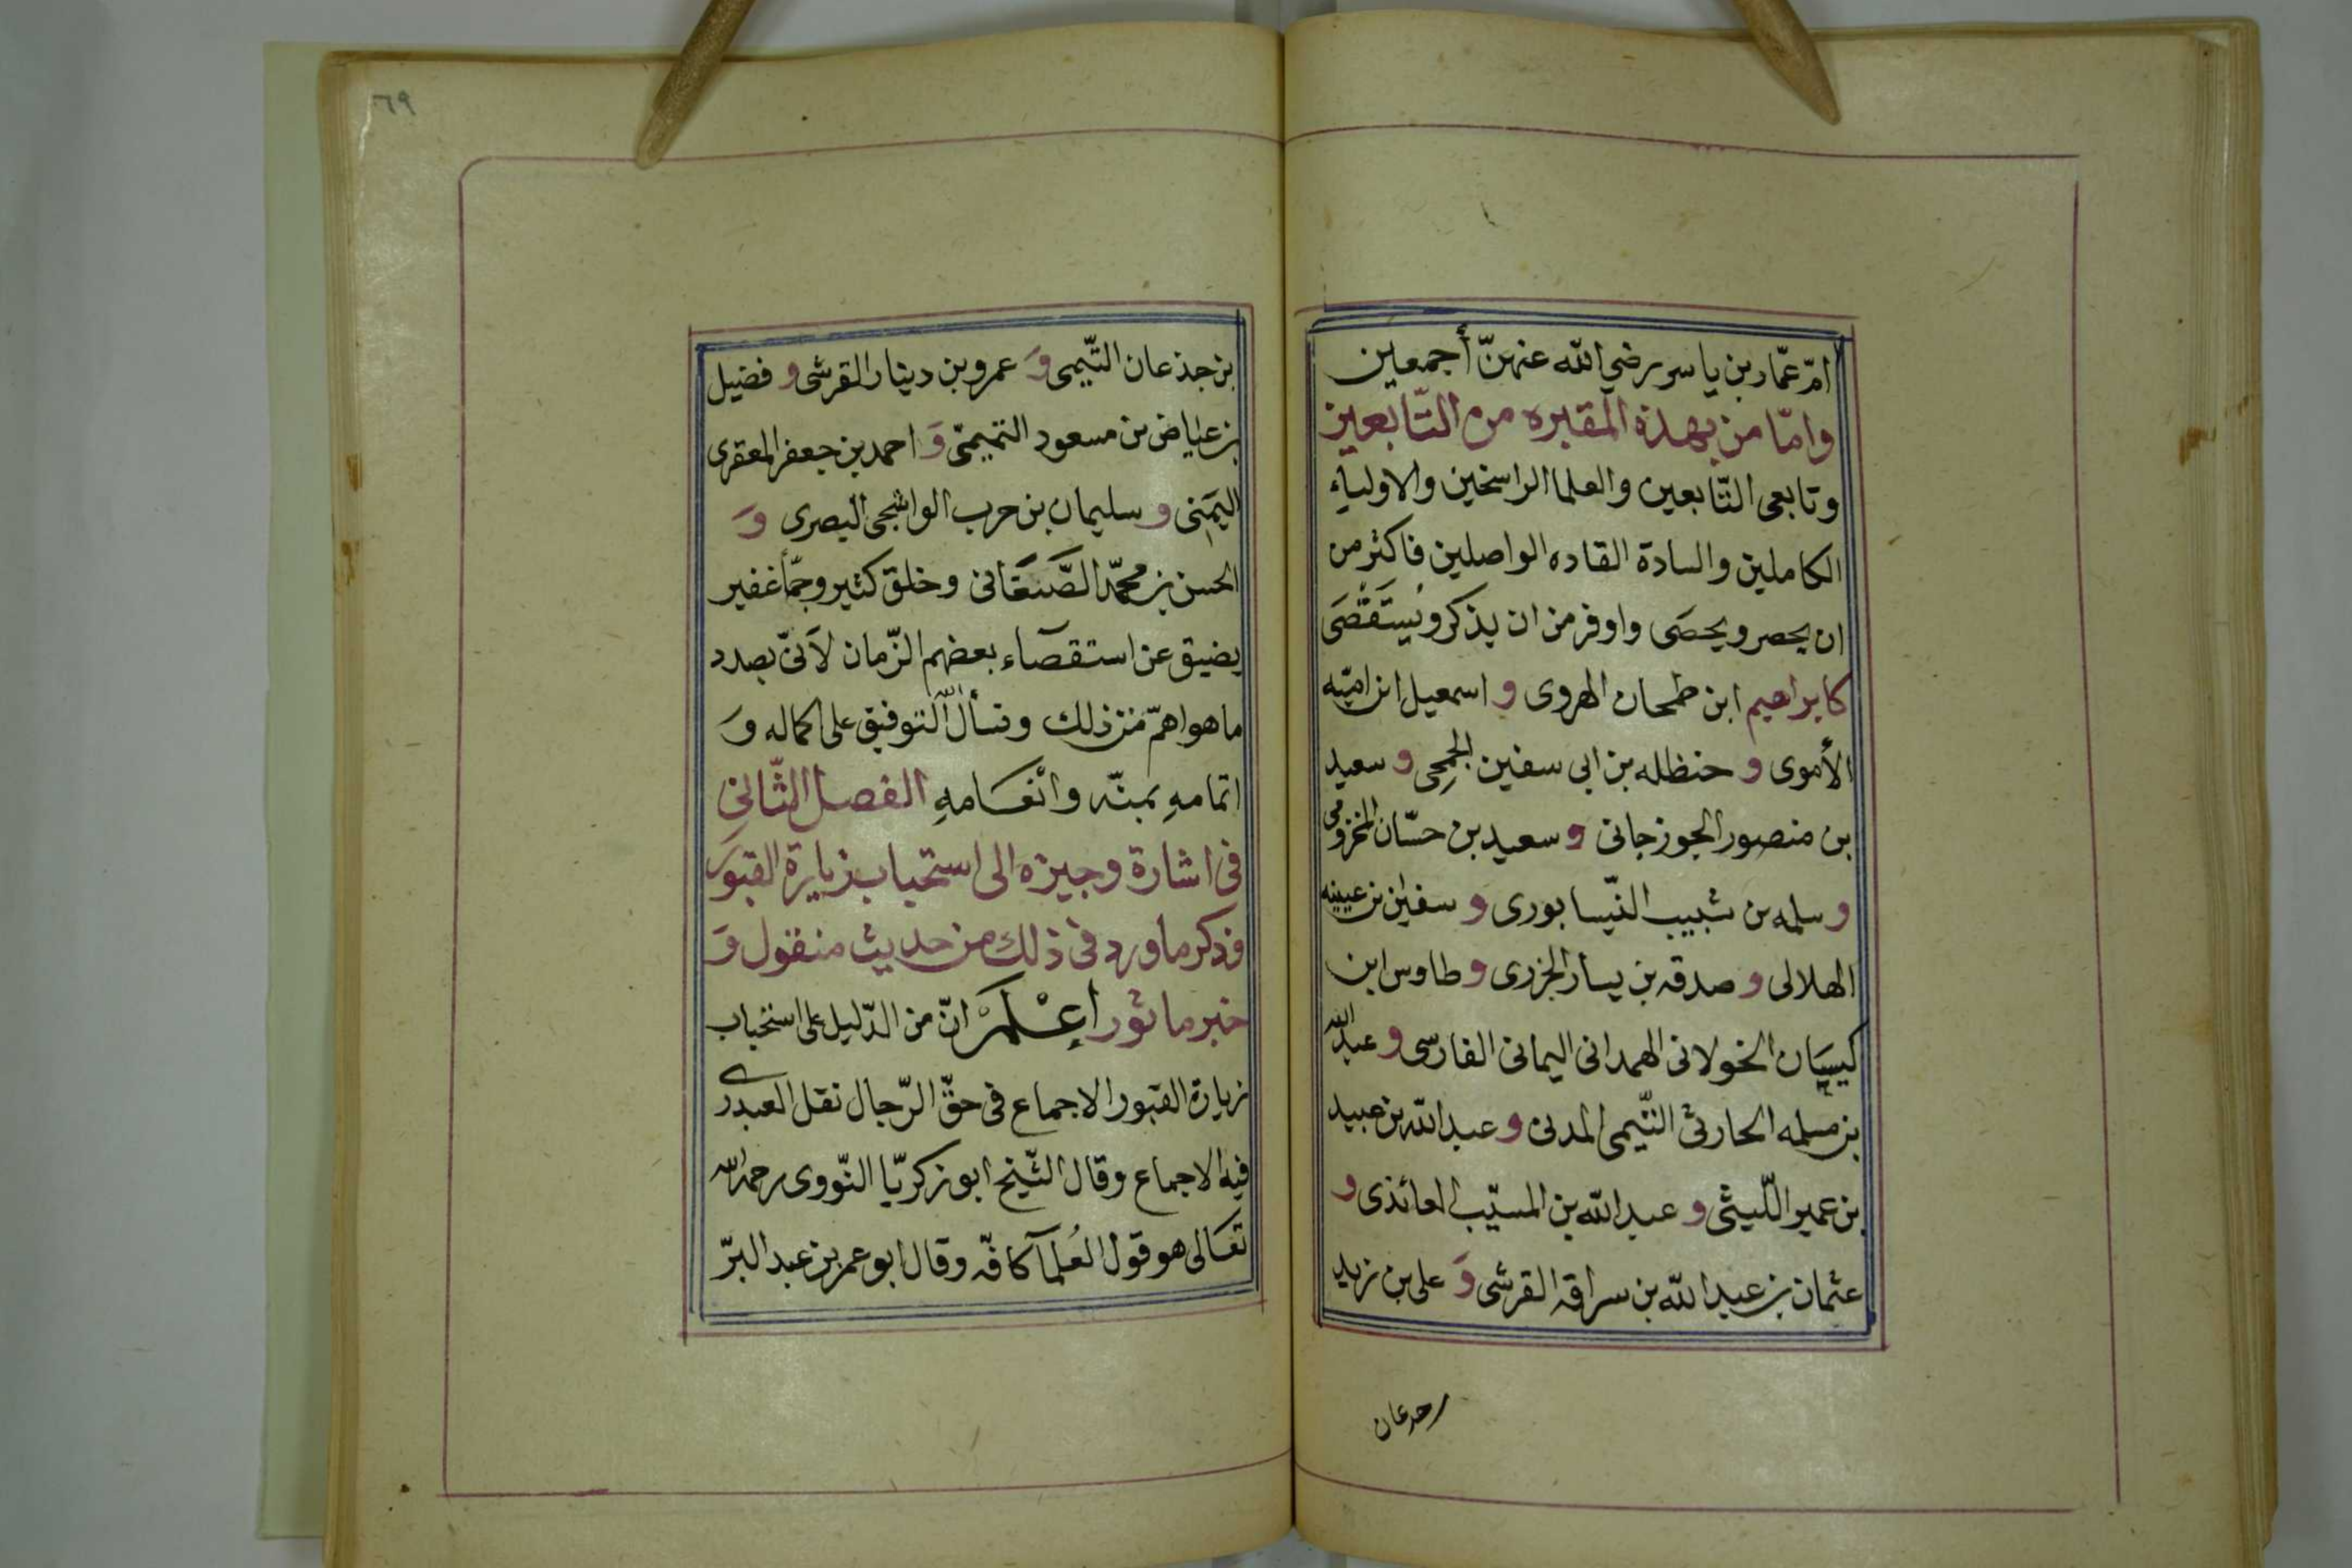 امّ عمّار بن ياسر رضي الله عنهنّ أجمعين
وامّا من بهذه المقبره من التّابعين
وتابعى التّابعين والعلما الراسخين والاولياء
الكاملين والسادة القاده الواصلين فاكثر من
ان يحصر ويحصى واوفر من ان يذكر ويستقصى
كابراهيم ابن طمحان الهروى و اسمعيل ابن اميّه
الأموى و حنظله بن ابى سفين الجمحى و سعيد
بن منصور الجوزجانى و سعيد بن حسّان المخزومى
و سلمه بن شبيب النّيسابورى و سفين بن عيينه
الهلالى و صدقه بن يسار الجزرى و طاوس ابن
كيسان الخولانى الهمدانى اليمانى الفارسى و عبد الله
بن مسلمه الحارثى التّيمى المدنى و عبد الله بن عبيد
بن عمير اللّيثى و عبد الله بن المسيّب العائذى و
عثمان بن عبد الله بن سراقه القرشى وَ على بن زيد
بن جدعان
٦٩
بن جذعان التّيمى وَ عمرو بن دينار القرشى و فضيل
بن عياض بن مسعود التميمىّ وَ احمد بن جعفر المعقرى
اليمَنِى و سليمان بن حرب الواشجى البصرى وَ
الحسن بن محمّد الصَّنعَانى وخلق كثير وجمّا غفير
يضيق عن استقصآء بعضهم الزّمان لأنّى بصدد
ما هو اهمّ من ذلك ونسأل الله التوفيق على اكماله وَ
اتمامهِ بمنّه وانْعَامهِ الفصل الثّانى
فى اشارة وجيزه الى استحباب زيارة القبور
وذكر ما ورد فى ذلك من حديث منقول وَ
خبر ماثور اِعْلَمْ انّ من الدّليل على استحباب
زيارة القبور الاجماع فى حقّ الرّجال نقل العبدرى
فيه الاجماع وقال الشّيخ ابو زكريّا النّووى رحمه الله
تعَالى هو قول العُلمآ كافّه وقال ابو عمر بن عبد البرّ